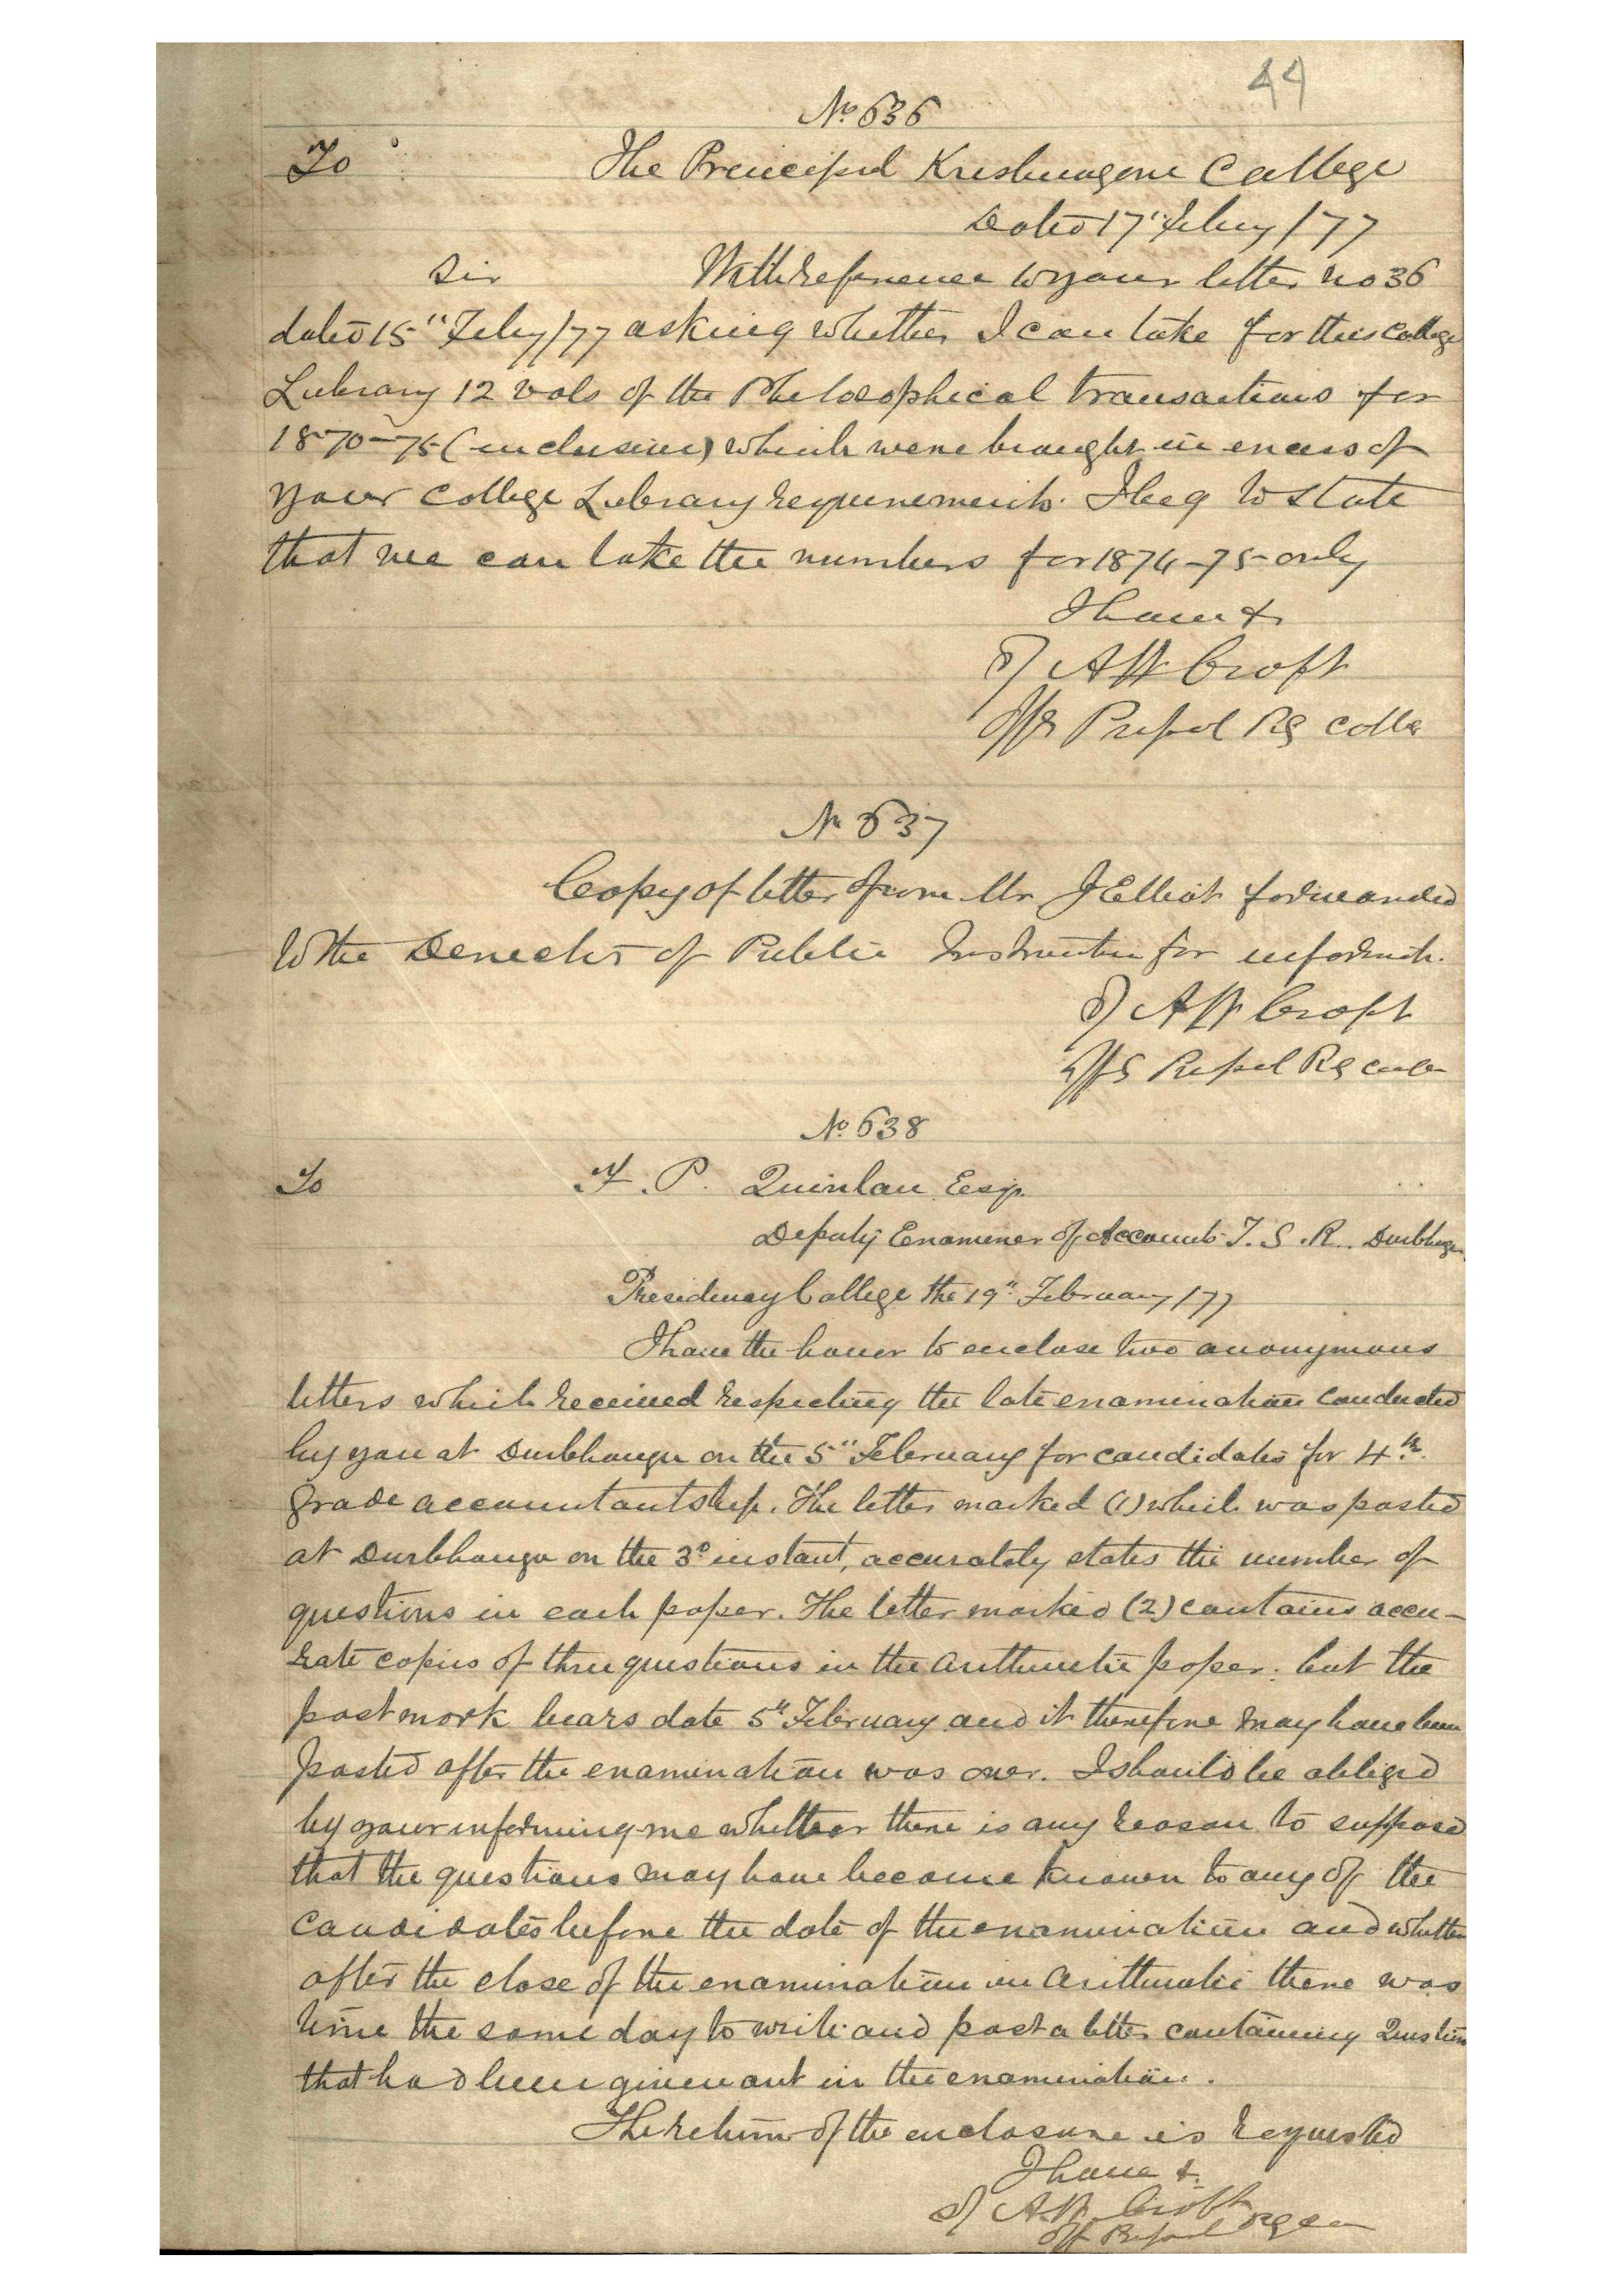 44
No. 636
To The Principal Krishnagur College
Dated 17" Feby/77
Sir With reference to your letter no 36
dated 15" Feby/77 asking whether I can take for this College
Library 12 vols of the Philosophical transactions for
1870-75 (inclusive) which were brought in excess of
your College Library requirements. I beg to state
that we can take the numbers for 1874-75 only
I have &
Sd/ A W Croft
Offg Prpal Pg Colle
No 637
Copy of letter from Mr J Elliot forwarded
to the Director of Public Instruction for informatn.
Sd/ A W Croft
Offg Prpal Pg Colle
No. 638
To F. P. Quinlan Esqr.
Deputy Examiner of Accounts T. S. R. Durbhunga
Presidency College the 19" February/77
I have the honor to enclose two anonymous
letters which received respecting the late examination conducted
by you at Durbhunga on the 5" February for candidates for 4th
grade accountantship. The letter marked (1) which was posted
at Durbhunga on the 3d instant, accurately states the number of
questions in each paper. The letter marked (2) contains accu-
rate copies of three questions in the arithmetic paper. but the
postmark bears date 5th February and it therefore may have been
posted after the examination was over. I should be obliged
by your informing me whether there is any reason to suppose
that the questions may have become known to any of the
candidates before the date of the examination and whether
after the close of the examination in arithmetic there was
time the same day to write and post a letter containing Question
that had been given out in the examination.
The return of the enclosure is requested
I have &.
Sd/ A.W. Croft
Off Prpal Pg